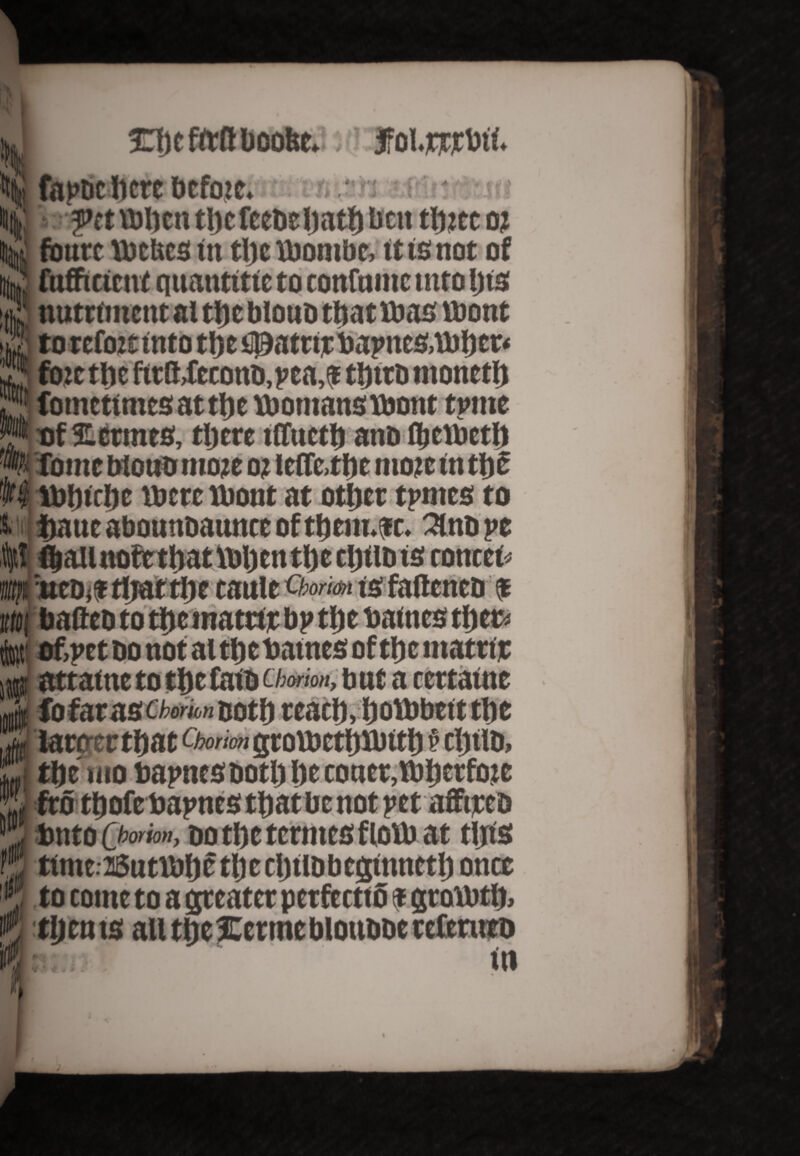 The first booke. Fol.xxxvii.
sayde here before.
Yet when the seede hath ben three or
foure wekes in the wombe, it is not of
sufficient quantitie to consume into his
nutriment al the bloud that was wont
to resort into the Matrix vaynes, wher-
fore the first, second, yea, & third moneth
sometimes at the womans wont tyme
of Termes, there issueth and sheweth
some bloud more or lesse, the more in thē
whiche were wont at other tymes to
haue aboundaunce of them. &c. And ye
shall note that when the child is concei-
ued, & that the caule Chorion is fastened &
basted to the matrix by the vaines ther-
of, yet do not al the vaines of the matrix
attaine to the said Chorion, but a certaine
so far as Chorion doth reach, howbeit the
larger that Chorion groweth with yͤ child,
the mo vaynes doth he couer, wherfore
frō those vaynes that be not yet affixed
vnto Chorion, do the termes flow at this
time: But whē the child beginneth once
to come to a greater perfectiō & growth,
then is all the Terme bloudde reserued
in